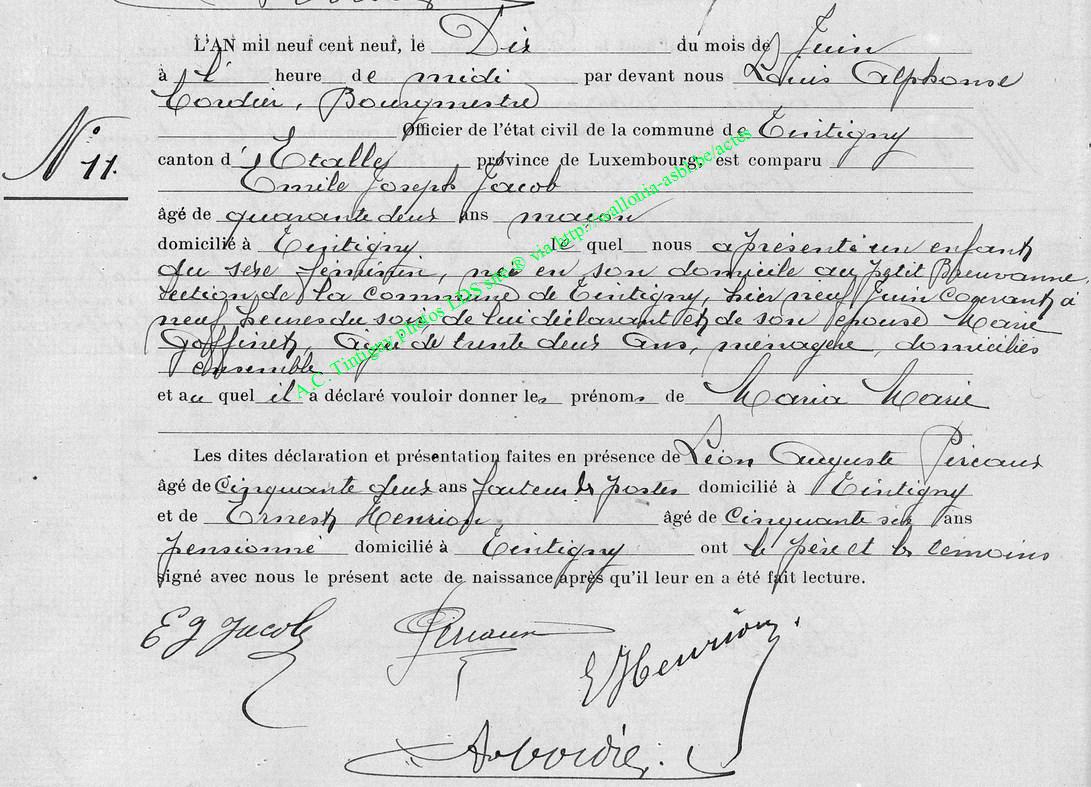 L'AN mil neuf cent neuf, le Dix du mois de Juin
à l' heure de midi par devant nous Louis Alphonse
Cordier, Bourgmestre
Officier de l'état civil de la commune de Tintigny
N° 11.
canton d' Etalle province de Luxembourg, est comparu
Emile Joseph Jacob
âgé de quarante deux ans maçon
domicilié à Tintigny le quel nous a présenté un enfant
du sexe féminin, né en son domicile au petit Breuvanne,
section de la commune de Tintigny, hier neuf Juin courant à
neuf heures du soir de lui déclarant et de son épouse Marie
Goffinet, agée de trente deux ans, ménagère, domiciliés
ensemble
et au quel il a déclaré vouloir donner les prénoms de Maria Marie
Les dites déclaration et présentation faites en présence de Léon Auguste
âgé de Cinquante deux ans facteur des postes domicilié à Tintigny
et de Ernest Henrion, âgé de Cinquante six ans
pensionné domicilié à Tintigny ont le père et les témoins
signé avec nous le présent acte de naissance après qu'il leur en a été fait lecture.
E J Jacob
E Henrion.
A.C. Tintigny photos LDS site® via http://wallonia-asbl.be/actes